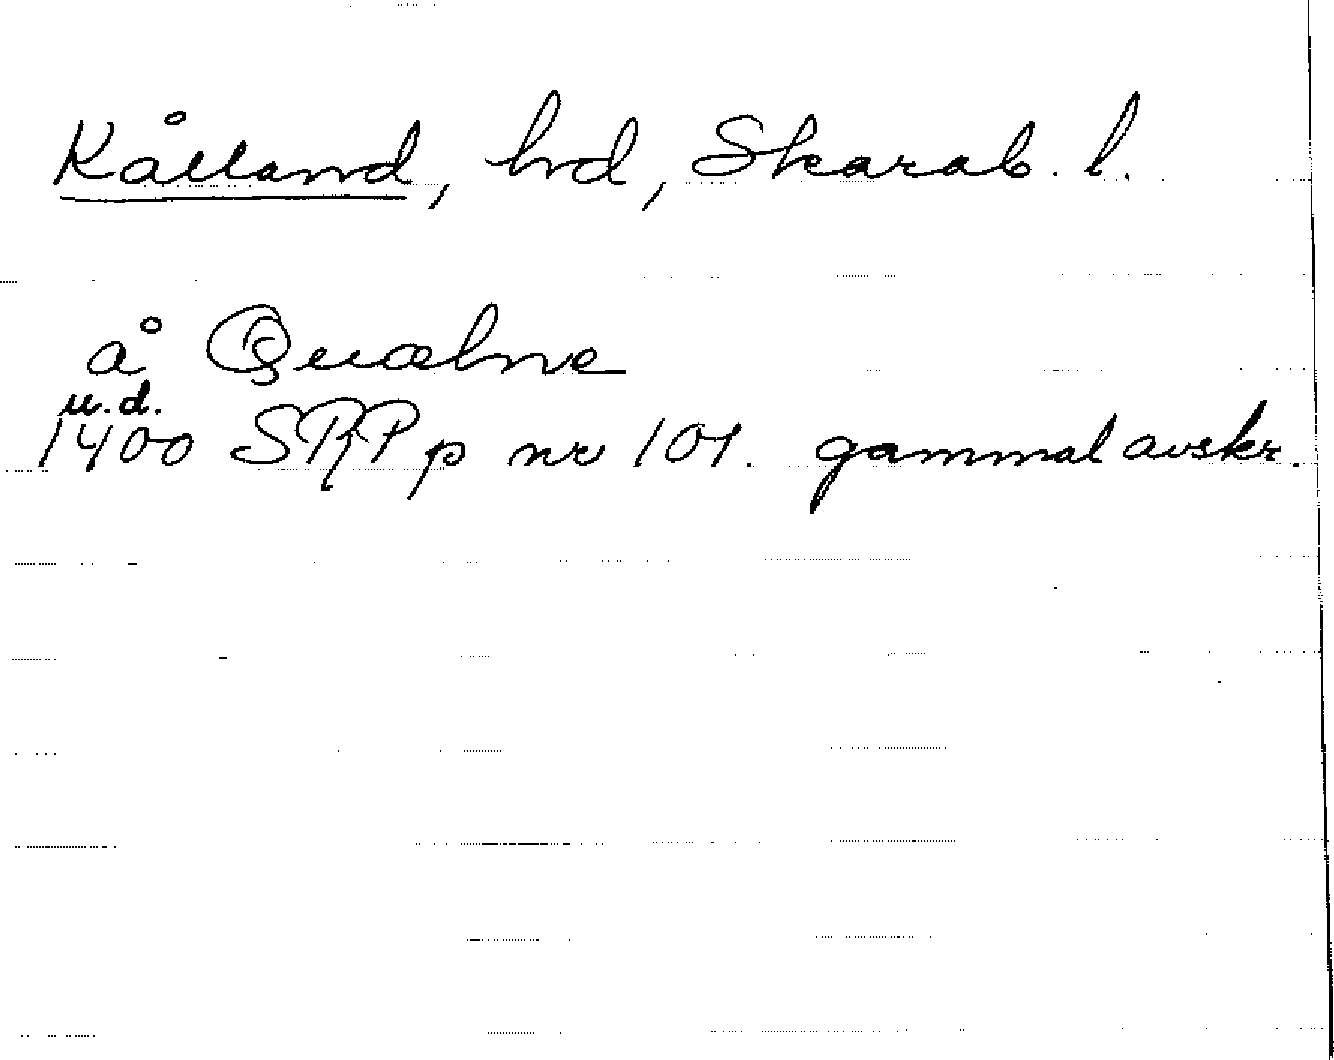 Kålland, hd, Skarab. l.
å Quælne
u.d.
1400 SRPp nr 101. gammal avskr.